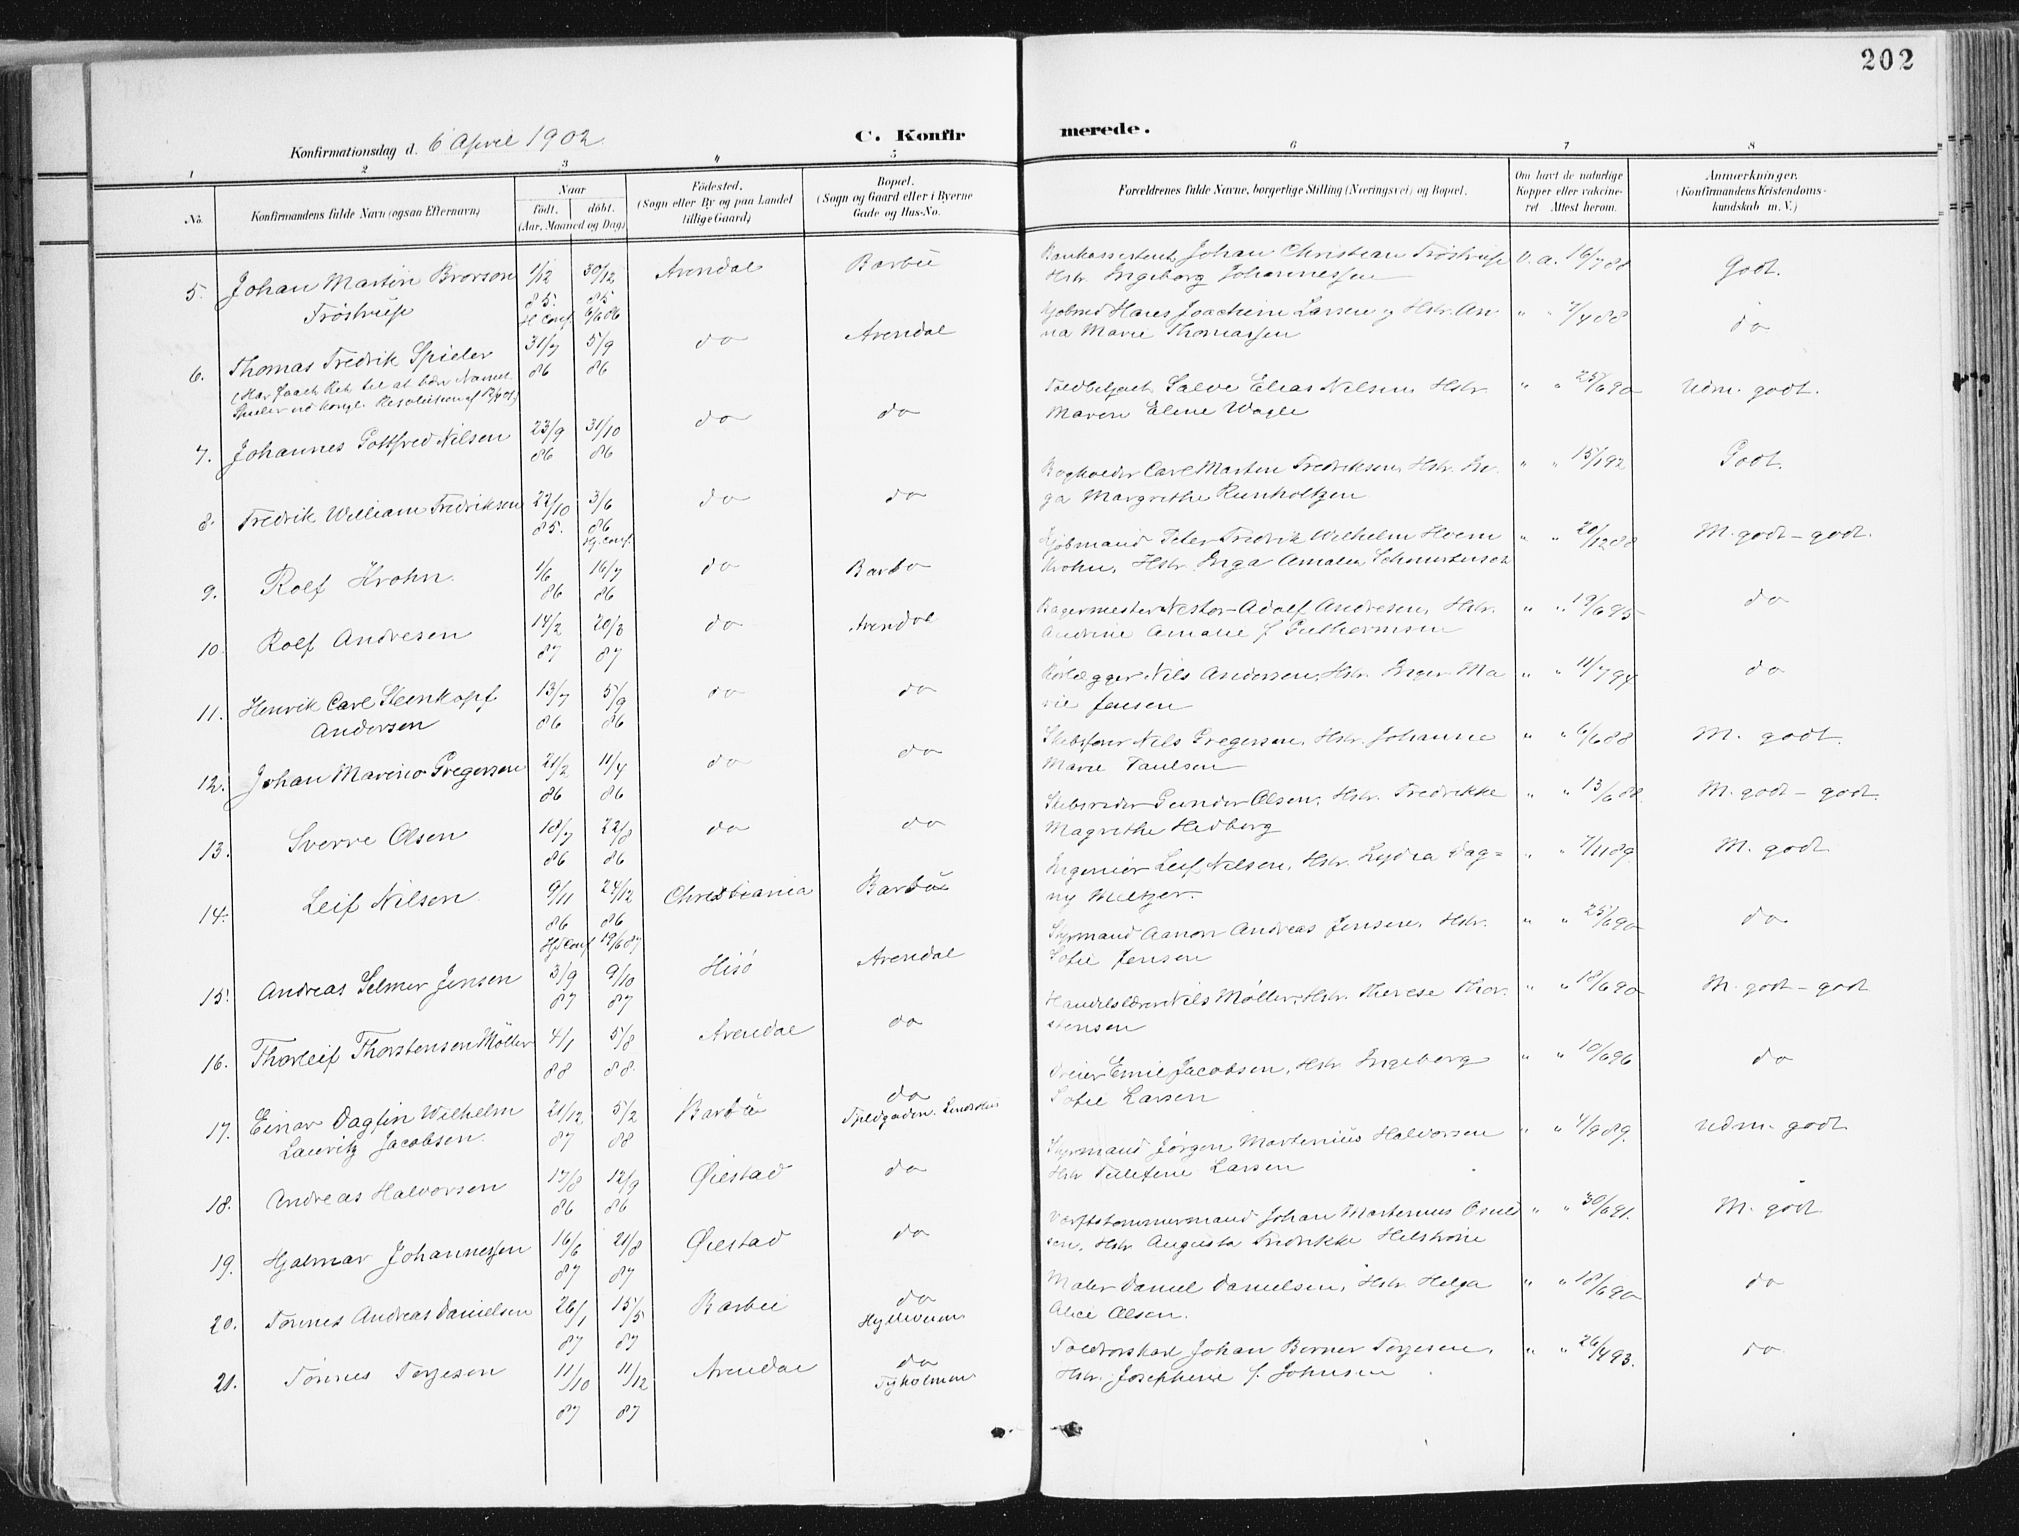 202
Konfirmationsdag d. 6 April 1902.
C. Konfirmerede.
1 2 3 4 5 6 7 8
No.
Konfirmandens fulde Navn (ogsaa Efternavn)
Naar
födt. döbt.
(Aar, Maaned og Dag)
Födested.
(Sogn eller By og paa Landet
tillige Gaard)
Bopæl.
(Sogn og Gaard eller i Byerne
Gade og Hus-No.
Forældrenes fulde Navne, borgerlige Stilling (Næringsvei) og Bopæl.
Om havt de naturlige
Kopper eller vakcineret
Attest herom.
Anmærkninger.
(Konfirmandens Kristendomskundskab
m. V.)
5. Johan Martin Brorson 1/12 30/12 Arendal Barbu
Trøstrup 85. 85
H Conf. 6/6 86
Johan Christian Trøstrup v. a. 16/7 88 Godt.
Hstr. Ingeborg Johannessen
6. Thomas Fredrik Spieler 31/7 5/9 do Arendal
86 86
Hans Joachim Larsen og Hstr. An- " " 7/4 88 do
na Marie Thomassen
7. Johannes Gottfred Nilsen 23/9 31/10 do do
86 86
Toldbetjent Salve Elias Nilsen, Hstr. " " 25/6 90 Udm. godt.
Maren Eline Wagle
8. Fredrik William Fredriksen 22/10 3/6 do do
85. 86
Hj. Conf.
Bogholder Carl Martin Fredriksen, Hstr. In- " " 15/1 92 Godt.
ga Margrethe
9. Rolf Krohn. 1/6 16/7 do Barbo
86 86
Kjøbmand Peter Fredrik Wilhelm " " 20/12 88 M. godt - godt.
Krohn, Hstr. Inga Amalia
10. Rolf Andresen 14/2 20/3 do Arendal
87 87
Bagermester Nestor Adolf Andresen, Hstr. " " 19/6 95 do
Andrine Amalie f. Guthormsen
11. Henrik Carl Steenkopf 13/7 5/9 do do
Andersen 86 86
Nils Andersen, Hstr. Inger Ma- " " 11/7 94 do
rie Jensen
12. Johan Marino Gregersen 21/2 11/4 do do
86 86
Skibsfører Nils Gregersen, Hstr. Johanne " " 6/6 88 M. godt.
Marie Paulsen
13. Sverre Olsen 18/7 22/8 do do
86 86
Skibsreder Gunder Olsen, Hstr. Fredrikke " " 13/6 88. M. godt - godt.
Magrethe Hedberg
14. Leif Nilsen 9/11 24/12 Christiania Barbu
86 86
Hj Conf 19/6 87
Ingeniør Leif Nilsen, Hstr. Lydia Dag- " " 7/11 89. M. godt
ny Meltzer.
15. Andreas Selmer Jensen 3/9 9/10 Hisö Arendal
87 87
Styrmand Aanon Andreas Jensen, Hstr. " " 25/6 90 do
Sofie Jensen
16. Thorleif Thorstensen Möller 4/1 5/8 Arendal do
88 88.
Handelslærer Nils Møller, Hstr. Therese Thor- " " 18/6 90 M. godt - godt
stensen
17. Einar Dagfin Wilhelm 21/12 5/2 Barbu do
Lauritz Jacobsen. 87 88
Dreier Emil Jacobsen, Hstr Ingeborg " " 10/6 96 do
Sofie Larsen
18. Andreas Halvorsen 17/8 12/9 Øiestad do
86 86
Styrmand Jørgen Martenius Halvorsen " " 4/9 89. Udm. godt
Hstr Larsen
19. Hjalmar Johannessen 16/6 21/8 Øiestad do
87 87
Værftstømmermand Johan Martenius Osuld- " " 30/6 91. M. godt
sen, Hstr. Augusta Fredrikke
20. Tønnes Andreas Danielsen 26/1 15/5 Barbu do
87 87
Maler Daniel Danielsen, Hstr Helga " " 18/6 90 do
Alice Olsen.
21. Tønnes Terjesen 11/10 11/12 Arendal do
87 87 Tyholmen
Johan Berner Terjesen, " " 26/4 93. do
Hstr. Josephine f. Johnsen